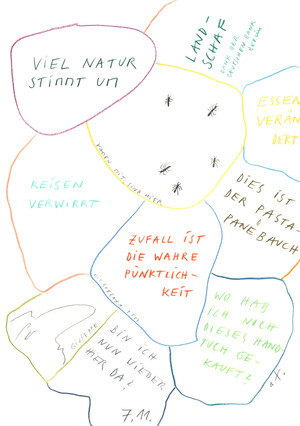 VIEL NATUR
STIMMT UM
LAND-
SCHAF
DANK DER
DEUTSCHEN BAHN
ESSEN
VERÄN
DERT
KAMEN MIT, SIND HIER
REISEN
VERWIRRT
DIES IST
DER PASTA-
PANEBAUCH
ZUFALL IST
DIE WAHRE
PÜNKTLICH-
KEIT
WO HAB
ICH NOCH
DIESES HAND
TUCH GE-
KAUFT?
BIN ICH
NUN WIEDER
HIER DA?
7.11.